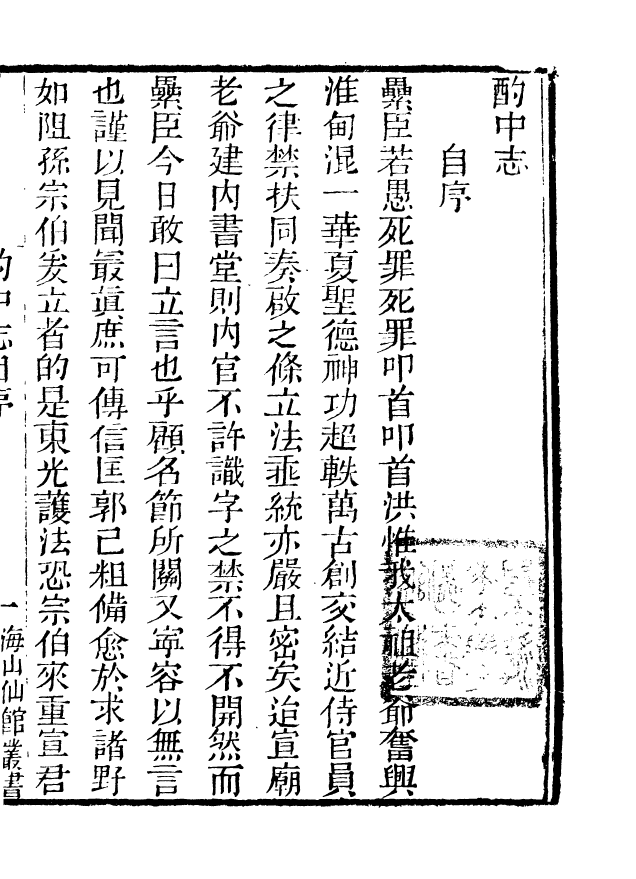 酌中志
自序
纍臣若愚死罪死罪叩首叩首洪惟我太祖老爺奮興
淮甸混一華夏聖德神功超軼萬古創交結近侍官員
之律禁扶同奏啟之條立法垂統亦嚴且密矣迨宣廟
老爺建內書堂則內官不許識字之禁不得不開然而
纍臣今日敢曰立言也乎顧名節所關又寧容以無言
也謹以見聞最眞庶可傳信匡郭已粗備愈於求諸野
如阻孫宗伯爰立者的是東光護法恐宗伯來重宣君
酌中志自序
一
海山仙館叢書